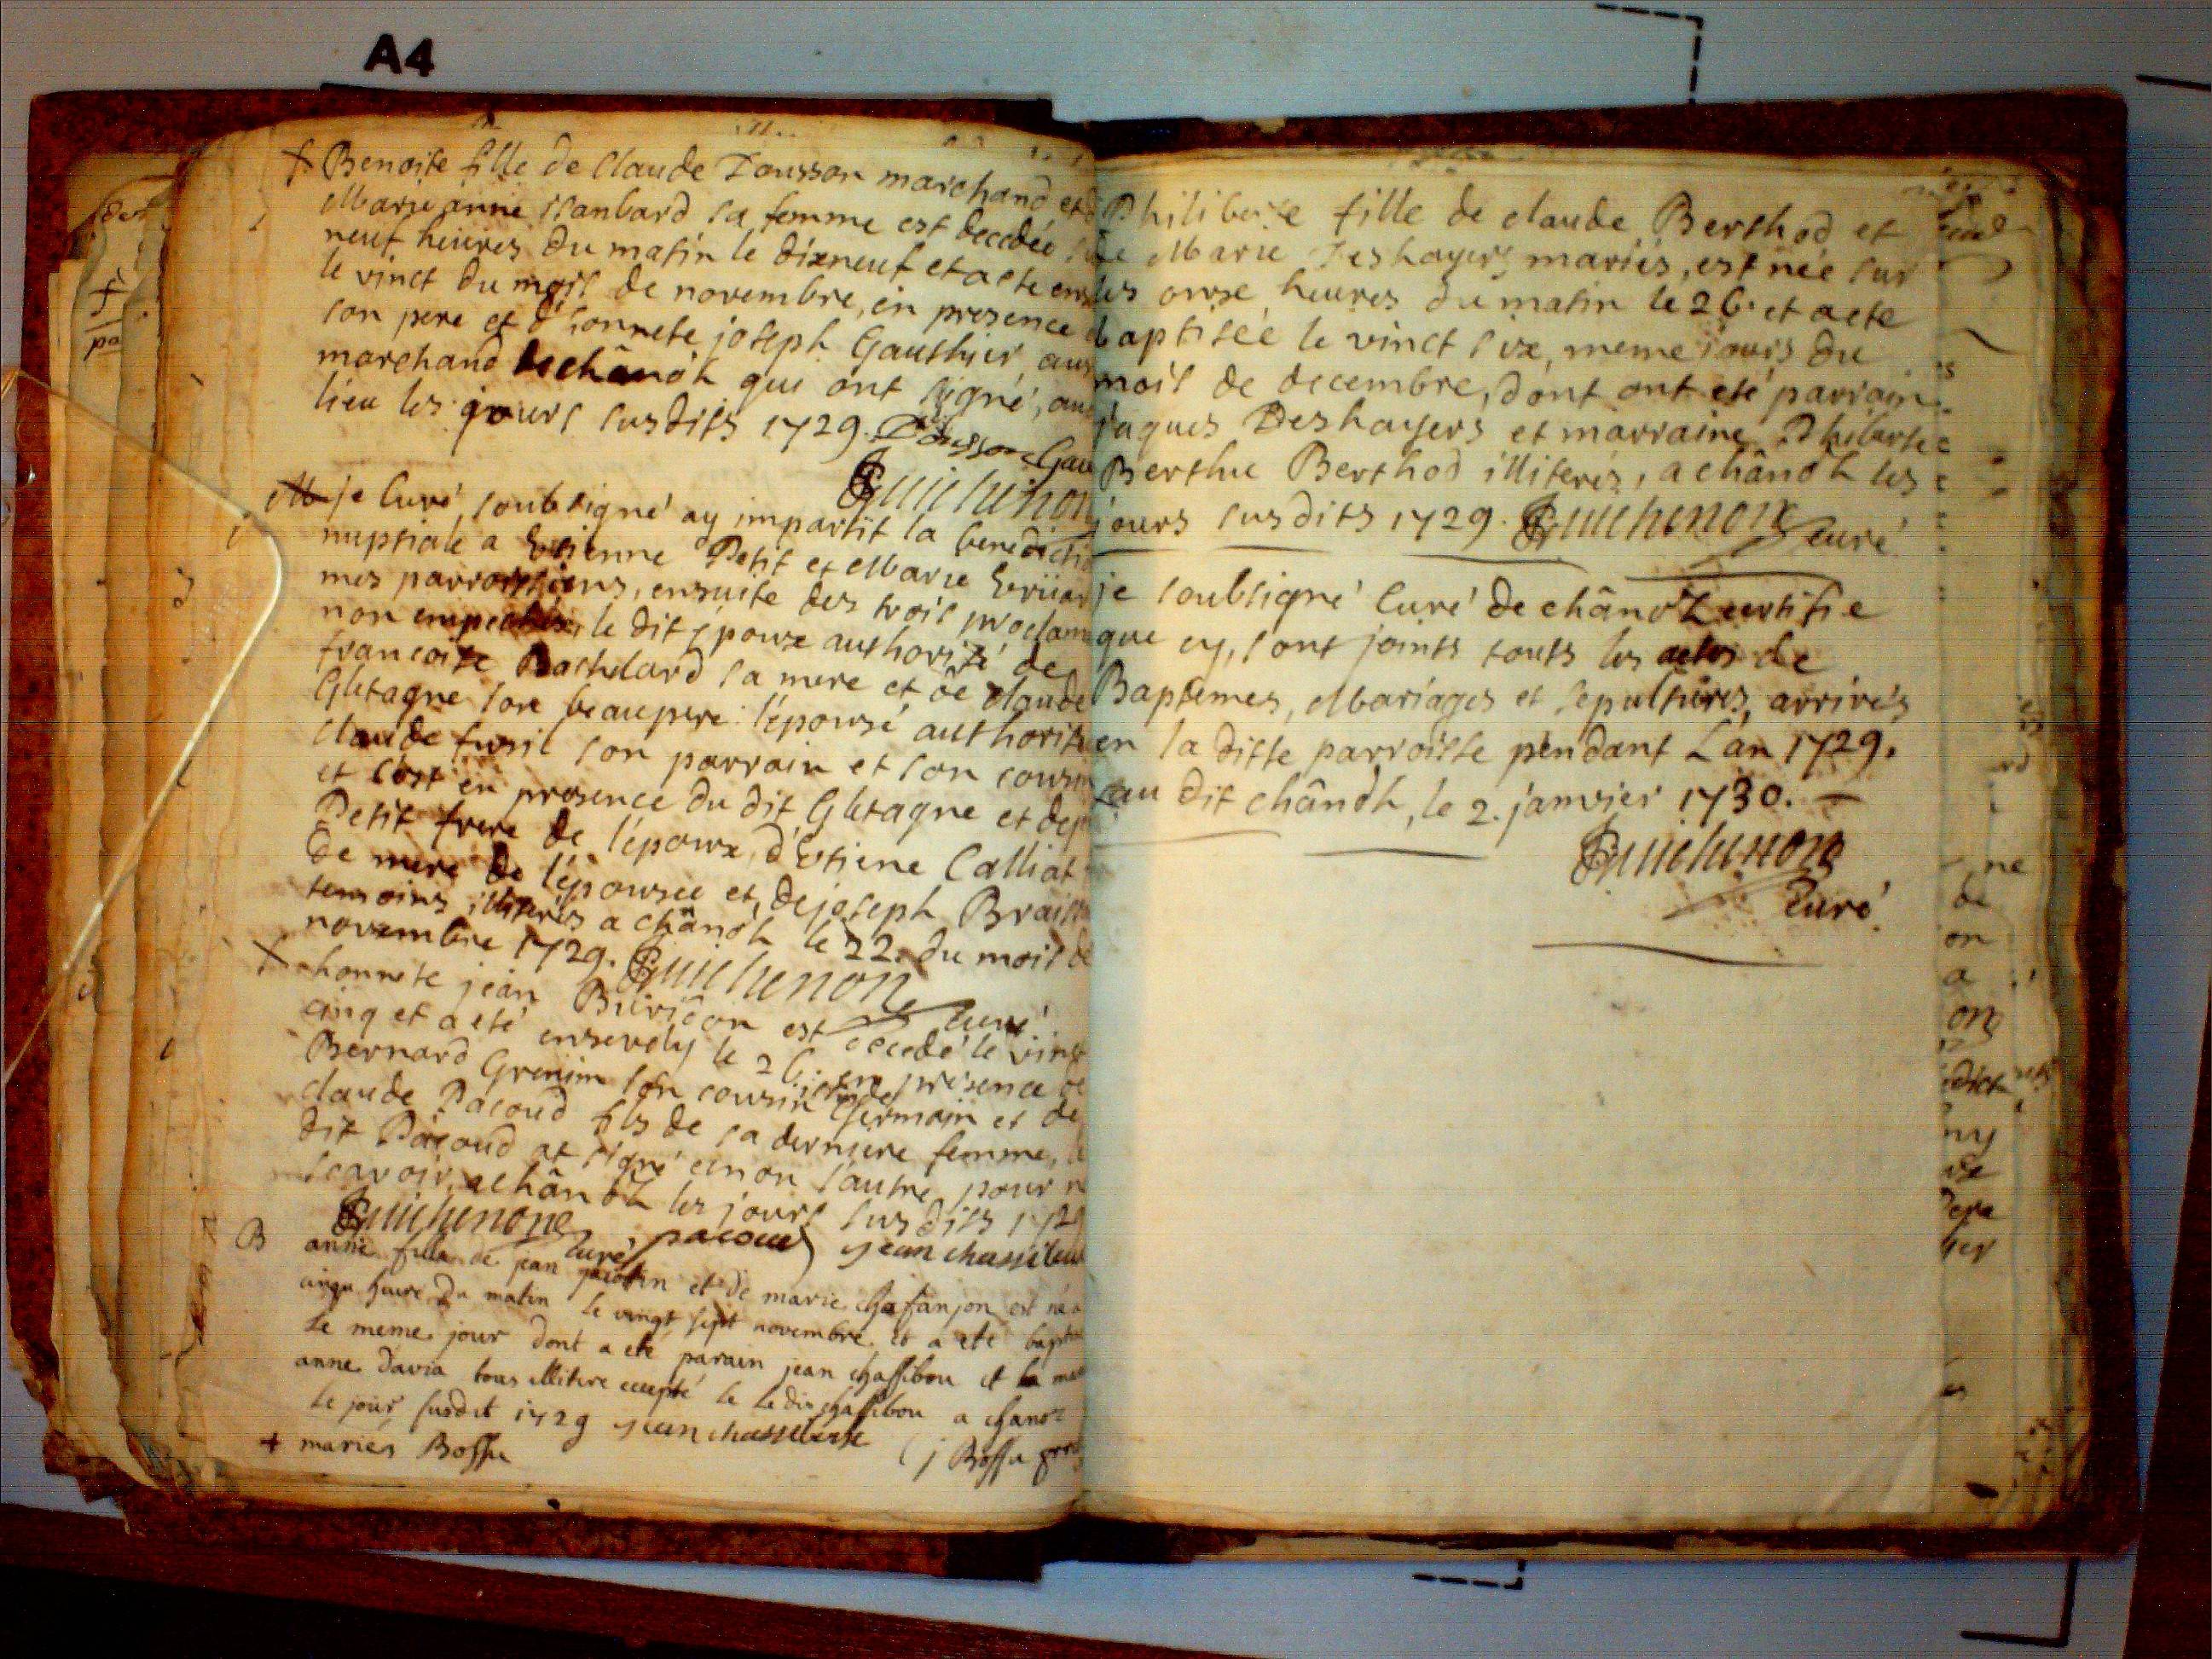 A4
Benoite fille de Claude Dousson marchand et d
Marie anne isanbard sa femme est decedée
neuf heures du matin le dixneuf et a ete ens
le vinct du mois de novembre, en presence d
son pere et d'honnete joseph Gauthier, aus
marchand de chânoh que ont signé, au
lieu les jours susdits 1729. Dousson Gau
Guichenon
M je Curé soubsigné ay impartit la benedictio
nuptiale a Etienne Petit et Marie
mes parroissiens, ensuite des trois proclam
non empechés, le dit époux authorisé de
francoise Bachelard sa mere et de Claude
Gletagne son beaupere: l'épousé authorisé
Claude fusil son parrain et son cousin
et c'est en presence du dit Gletagne et de
Petit frere de l'époux, d'Etiene Calliat
de mere de l'épousée et, de joseph
temoins illiterés a chânoh le 22. du mois de
novembre 1729. Guichenon Curé
honnete jean est decedé le vinct
cinq et a eté ensevely le 26. en presence de
Bernard Grenim son cousin germain et de
claude Pacoud fils de sa derniere femme, le
dit Pacoud at signé et non l'autre, pour n
scavoir, a chânoh les jours susdits 1729
Guichenon Curé pacoud jean chassibou
B anne fille de jean et de marie chafanjon est née
cinqu heure du matin le vingt sept novembre et a ete baptis
le meme jour dont a eté parain jean chassibou et la ma
anne Davia tous illitere ecepté le le dit chassibou a chanoz
le jour susdit 1729 jean chassibou
mariés Bossu j Bossu
Philiberte fille de claude Berthod et
de Marie Deshayers mariés, est née sur
les onse heures du matin le 26. et a ete
baptisée le vinct sixe, meme jours du
mois de decembre, dont ont eté parrain
jaques Deshayers et marraine Philiberte
Berthod illiterés, a chânoh les
jours susdits 1729. Guichenon Curé
je soubsigné Curé de chânoz certifie
que cy, sont joints touts les actes de
Baptemes, Mariages et sepultures, arrivés
en la ditte parroisse pendant L'an 1729.
au dit chânoh, le 2. janvier 1730.
Guichenon
Curé